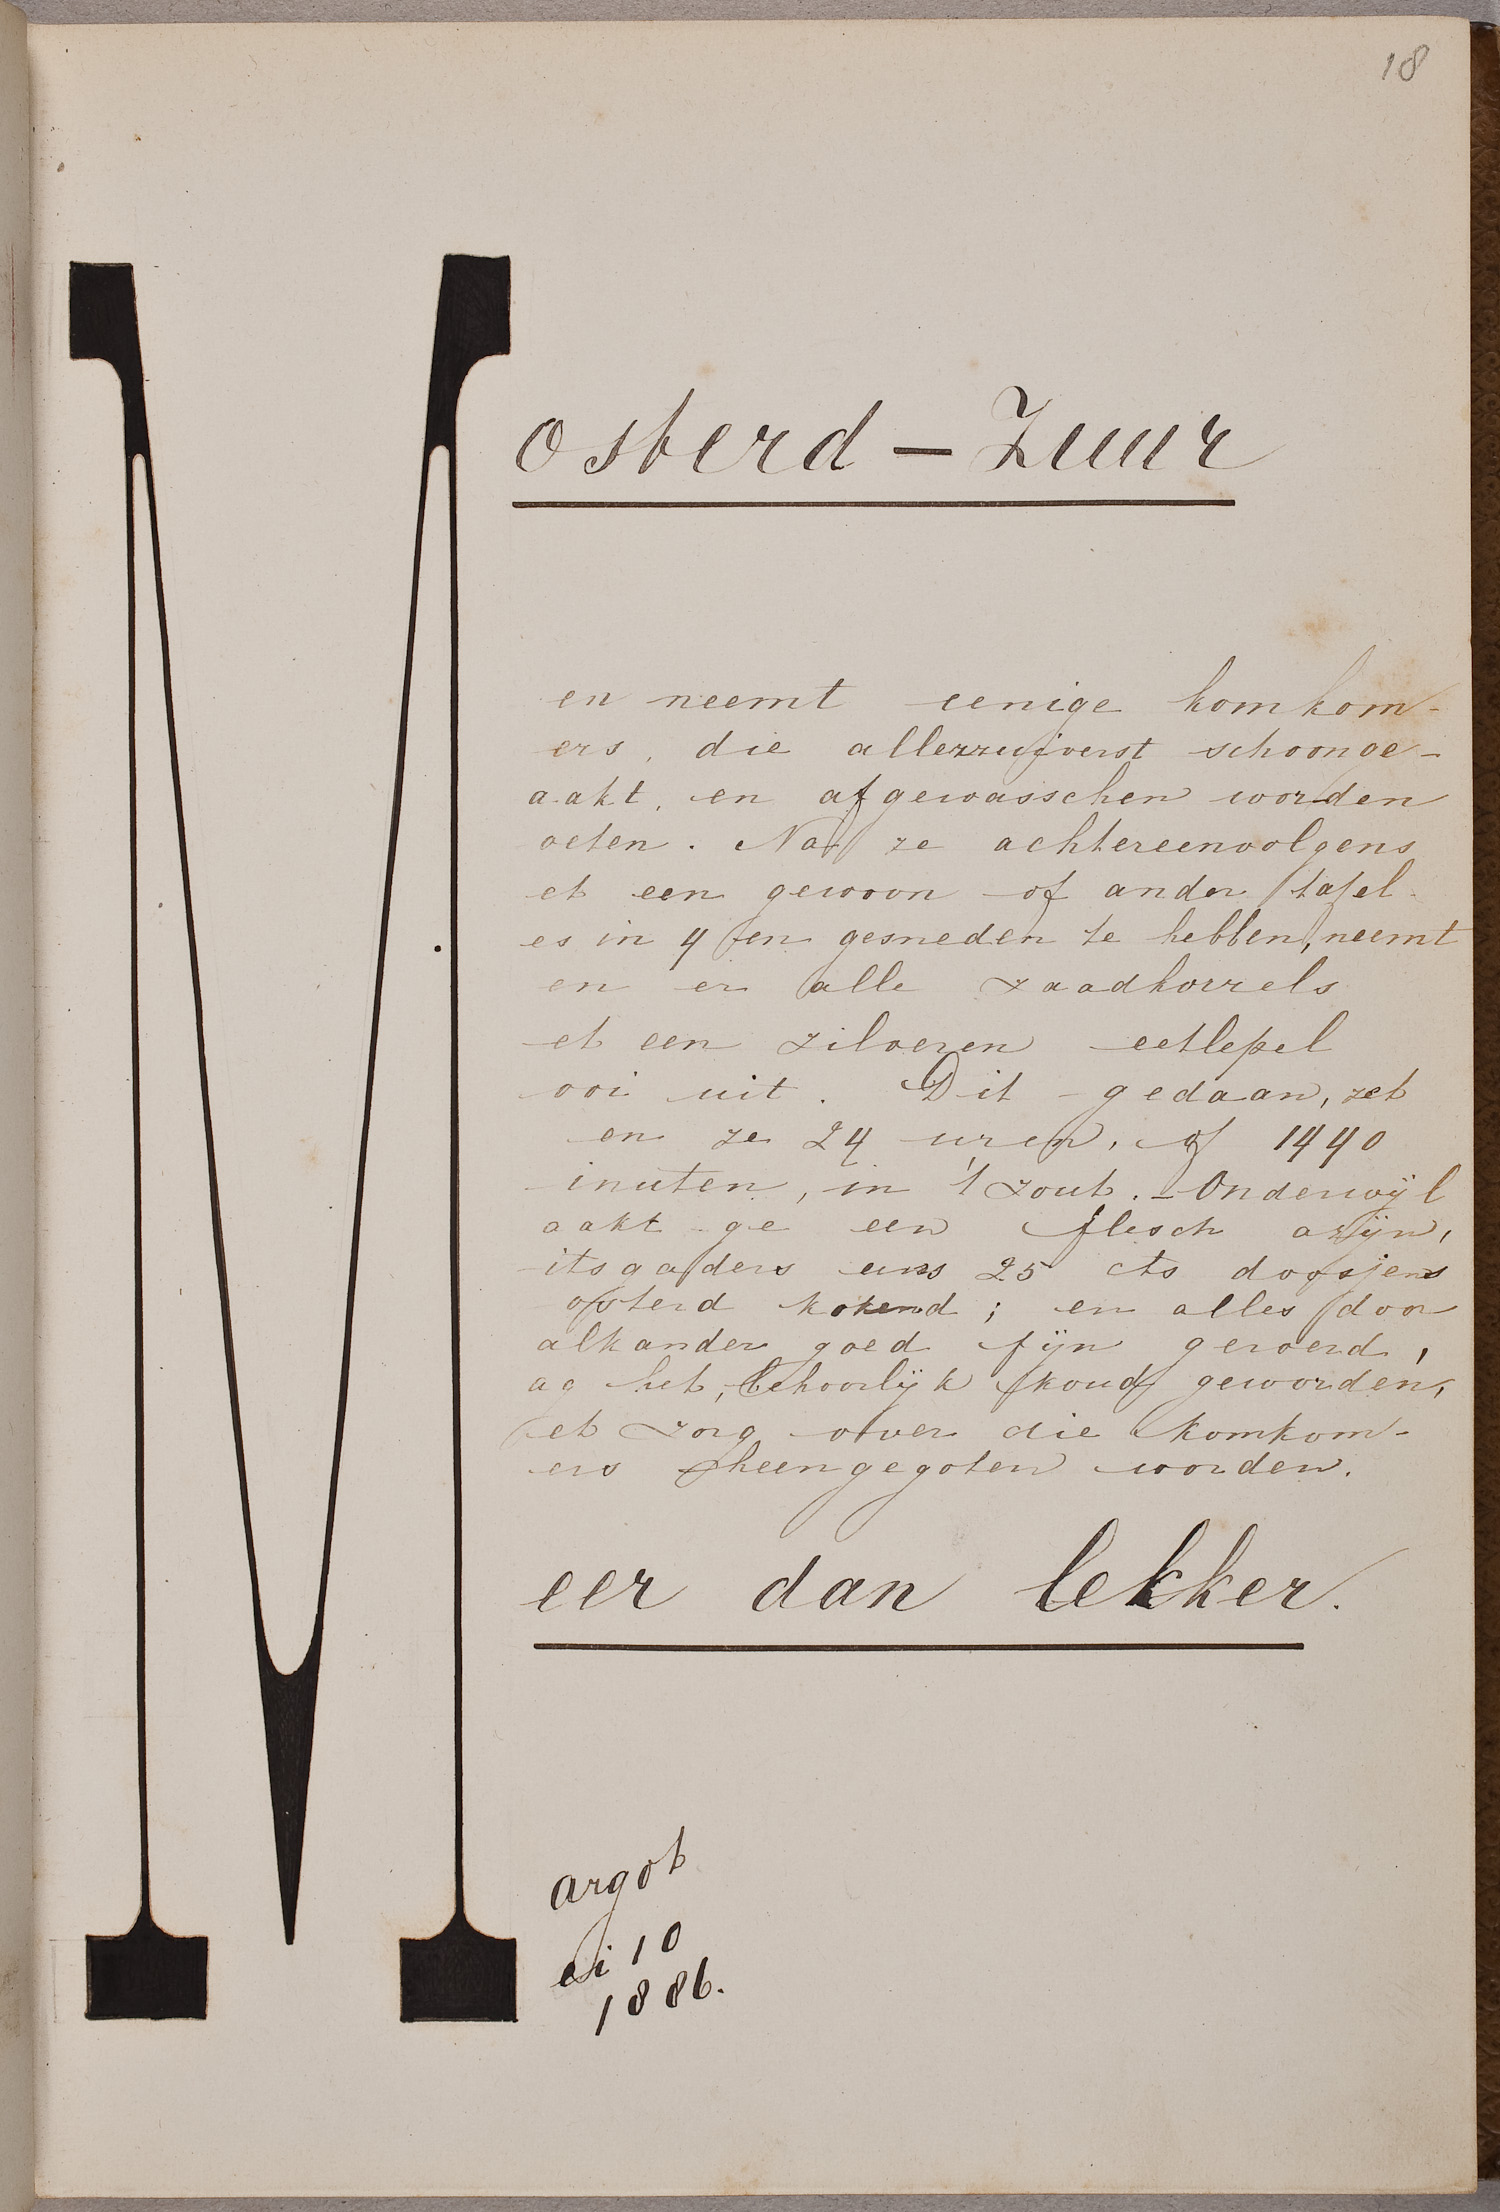 18
M
osterd — Zuur
en neemt eenige komkom-
ers, die allerzuiverst schoonge-
aakt, en afgewasschen worden
oeten. Na ze achtereenvolgens
et een gewoon of ander tafel-
es in 4 en gesneden te hebben, neemt
en er alle zaadkorrels
et een zilveren eetlepel
ooi uit. Dit gedaan, zet
en ze 24 uren, of 1440
inuten, in 't zout. — Onderwijl
aakt ge een flesch azijn,
itsgaders eens 25 cts doosjens
osterd kokend; en alles door
alkander goed fijn geroerd,
ag het, behoorlijk koud geworden,
et zorg over die komkom-
ers heengegoten worden.
eer dan lekker.
argot
ei 10
1886.